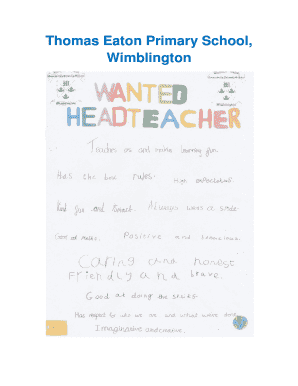 Thomas Eaton Primary School,
Wimblington
WANTED
HEADTEACHER
Teaches us and makes learning fun
Has the best rules. High expectations.
Kind fun and Always wears a smile
Good at maths. Positive and
Caring and honest
Friendly and brave.
Good at doing the
Has respect for who we are and what we've done
Imaginative and creative.